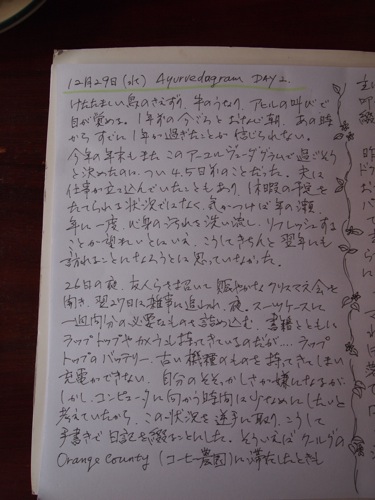 12月29日(水) Ayurvedagram DAY 2.
けたたましい鳥のさえずり、牛のうなり、アヒルの叫びで
目が覚める。1年前の今ごろとおなじ朝。あの時
からすでに1年が過ぎたことが信じられない。
今年の年末もまたこのアーユルヴェーダグラムで過ごそう
と決めたのは、つい4,5日前のことだった。夫に
仕事が立て込んでいたこともあり、休暇の予定を
たてられる状況ではなく、気がつけば年の瀬。
年に一度、心身の汚れを洗い流し、リフレッシュする
ことが望ましいとはいえ、こうしてきちんと翌年にも
訪れることになろうとは思っていなかった。
26日の夜、友人らを招いて賑やかなクリスマス会を
開き、翌27日は雑事に追われ、夜、スーツケースに
一週間分の必要なものを詰め込む。書籍とともに
ラップトップやカメラも持ってきているのだが…。ラップ
トップのバッテリー、古い機種のものを持ってきてしまい
充電ができない。自分のそそっかしさが嫌になるが、
しかし、コンピュータに向かう時間は少なめにしたいと
考えていたから、この状況を逆手に取り、こうして
手書きで日記を綴ることにした。そういえばクールグの
Orange County (コーヒー農園)に滞在したときも